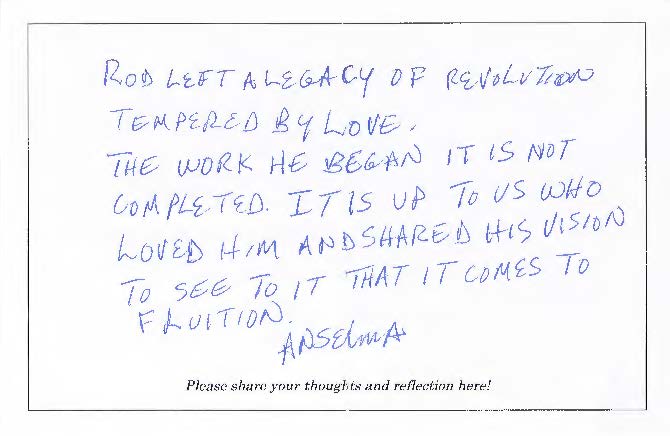 ROD LEFT A LEGACY OF REVOLUTION
TEMPERED BY LOVE.
THE WORK HE BEGAN IT IS NOT
COMPLETED. IT IS UP TO US WHO
LOVED HIM AND SHARED HIS VISION
TO SEE TO IT THAT IT COMES TO
FRUITION.
ANSELMA
Please share your thoughts and reflection here!